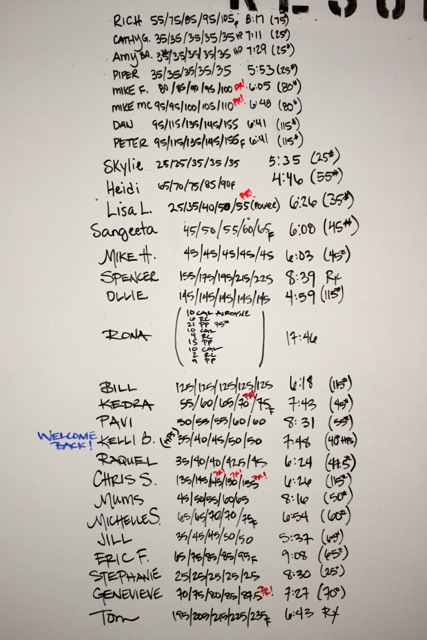 RICH 55/75/85/95/105F 8:17 (75)
CATHY G. 35/35/35/35/35 7:11 (25#)
Amy BA. 35/35/35/35/35 7:29 (25#)
PIPER 35/35/35/35/35 5:53 (25#)
MIKE F. 80/85/90/95/100 PR! 6:05 (80#)
MIKE MC 95/95/100/105/110 PR! 6:48 (80#)
DAN 95/115/135/145/155 6:41 (115#)
PETER 95/115/135/145/155F 6:41 (115#)
SKylie 25/25/35/35/35 5:35 (25#)
Heidi 65/70/75/85/90F 4:46 (55#)
Lisa L. 25/35/40/50/55 (Power) PR! 6:26 (35#)
Sangeeta 45/50/55/60/65F 6:00 (45#)
MIKE H. 45/45/45/45/45 6:03 (45#)
SPENCER 155/175/195/215/225 8:39 Rx
OLLIE 145/145/145/145/145 4:59 (115#)
10 CAL AIRDYNE
6 RC
21 PP 75#
10 CAL
4 RC
15 PP
10 CAL
2 RC
9 PP
RONA 17:46
BILL 125/125/125/125/125 6:18 (115#)
KEDRA 55/60/65/70/75F PR! 7:43 (45#)
PAVI 50/55/55/60/60 8:31 (55#)
WELCOME BACK! KELLI B. 35/40/45/50/50 7:48
RAQUEL 35/40/40/42.5/45 6:24 (42.5)
CHRIS S. 135/145/145/150/155 PR! PR! PR! 6:26 (115#)
MUMS 45/50/55/60/65 8:16 (50#)
MICHELLE S. 65/65/70/70/75F 6:54 (60#)
JILL 35/45/45/50/50 5:37 (65#)
ERIC F. 65/75/85/85/95F 9:08 (65#)
STEPHANIE 25/25/25/25/25 8:30 (25#)
GENEVIEVE 70/75/80/85/87.5 PR! 7:27 (70#)
Tom 195/205/215/225/235F 6:43 Rx